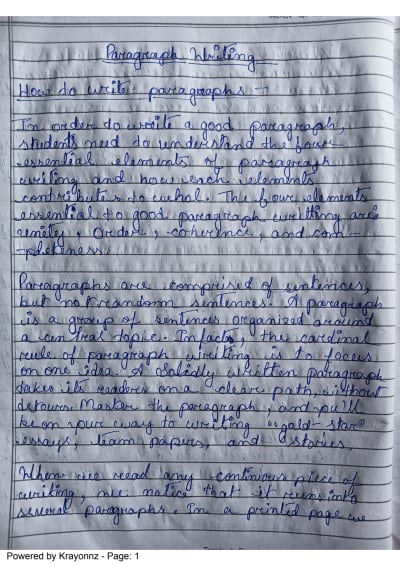 Paragraph Writing
How to write paragraphs →
In order to write a good paragraph,
students need to understand the four
essential elements of paragraph
writing and how each elements
contributes to whol. The four elements
essential to good paragraph writting are:
unity, order, coherence, and com-
-pleteness.
Paragraphs are comprised of sentences,
but not random sentences. A paragraph
is a group of sentences organized around
a central topic. In fact, the cardinal
rule of paragraph writing is to focus
on one idea. A solidly written paragraph
takes its readers on a clear path, without
detours. Master the paragraph, and you'll
be on your way to writing "gold-star"
essays, team papers, and stories.
When we read any continious piece of
writing, we notice that it runs into
several paragraphs. In a printed page we
Powered by Krayonnz - Page: 1